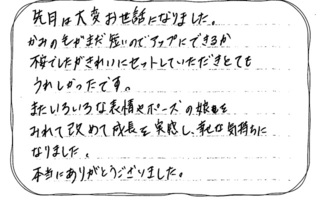 先日は大変お世話になりました。
かみの毛がまだ短いのでアップにできるか
不安でしたがきれいにセットしていただきとても
うれしかったです。
またいろいろな表情やポーズの娘を
みれて改めて成長を実感し、幸せな気持ちに
なりました。
本当にありがとうございました。